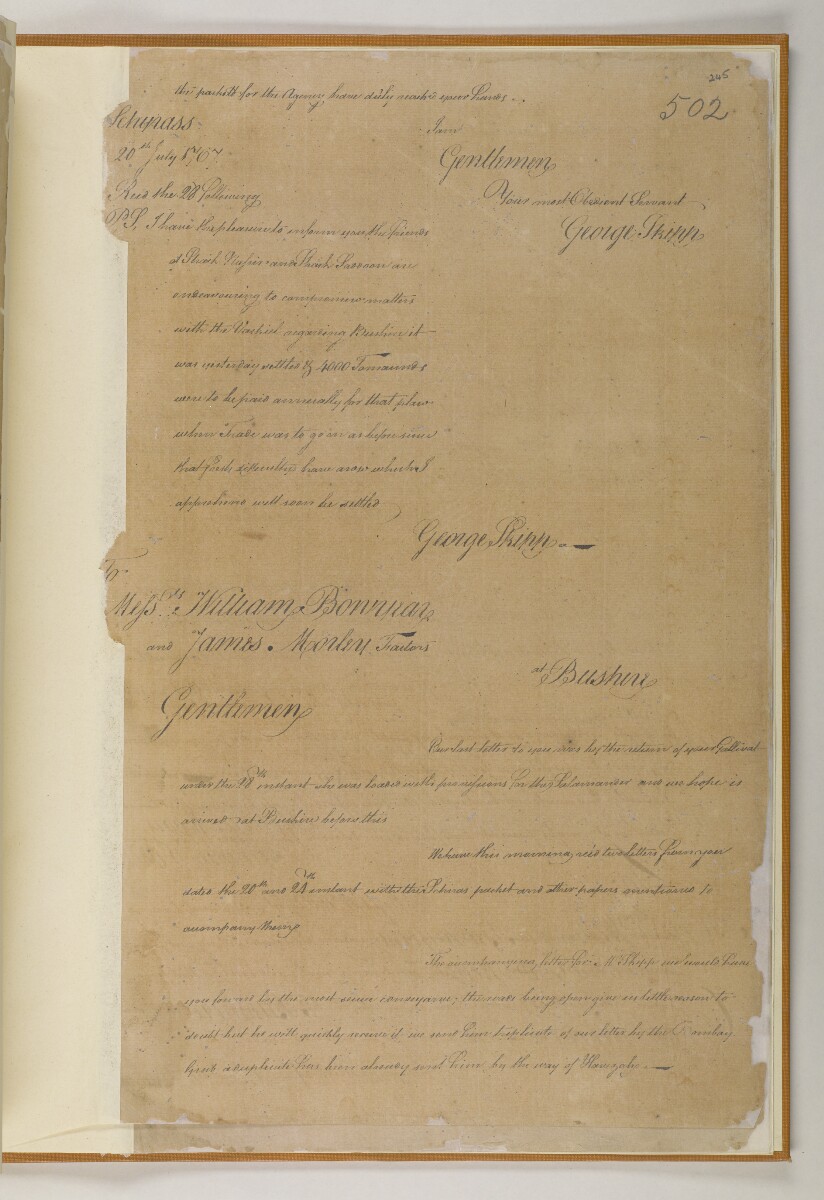 245
502
the packetts for the Agency, have duly reach'd your hands.
Schyrass
20th July 1767
I am
Gentlemen
Your most Obedient Servant
George Skipp
Rec'd the 28 following
P.S. I have the pleasure to inform you the friends
of Shaik and Shaik are
endeavouring to compromise matters
with the Vackiel regarding it
was yesterday settled 4000 Tomaunds
were to be paid annually for that place
when Trade was to go on as before since
that difficulties have arose which I
apprehend will soon be settled
George Skipp
To
Mess.rs William Bowyear
and James Morley Factors
at Bushire
Gentlemen
Our last letter to you was by the return of your Gallivat
under the 18th instant she was loaded with provisions for the Salamander and we hope is
arrived at Bushire before this
We have this morning rec'd two letters from you
dated the 20th and 24th instant with the packet and other papers mentioned to
accompany them
The accompanying letter for Mr Skipp we would have
you forward by the most secure conveyance; the roads being open give us little reason to
doubt but he will quickly receive it we sent him triplicate of our letter by the Bombay
Grab a duplicate has been already sent him by the way of